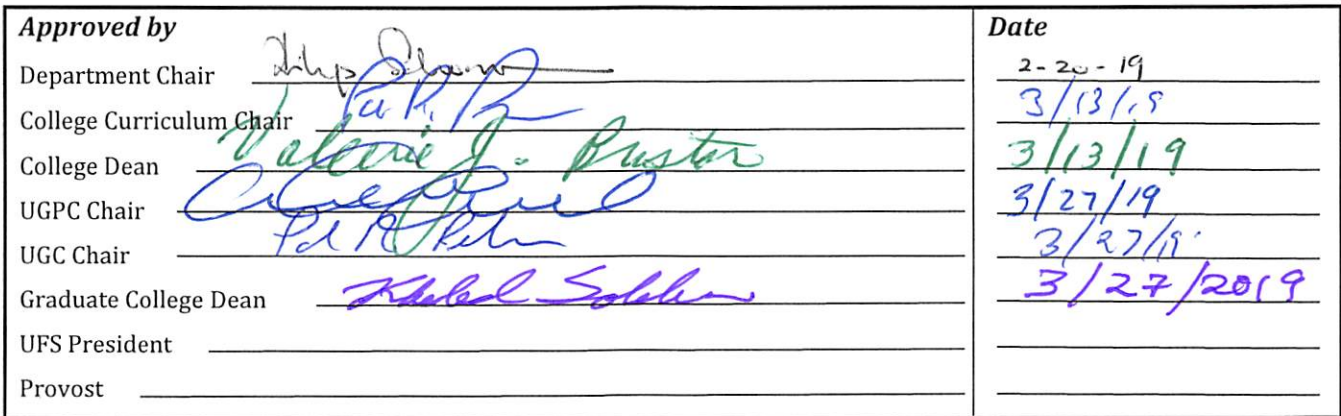 Approved by Date
Department Chair 2-20-19
College Curriculum Chair 3/13/19
College Dean Valerie J. Bristor 3/13/19
UGPC Chair 3/27/19
UGC Chair 3/27/19
Graduate College Dean Khaled 3/27/2019
UFS President
Provost